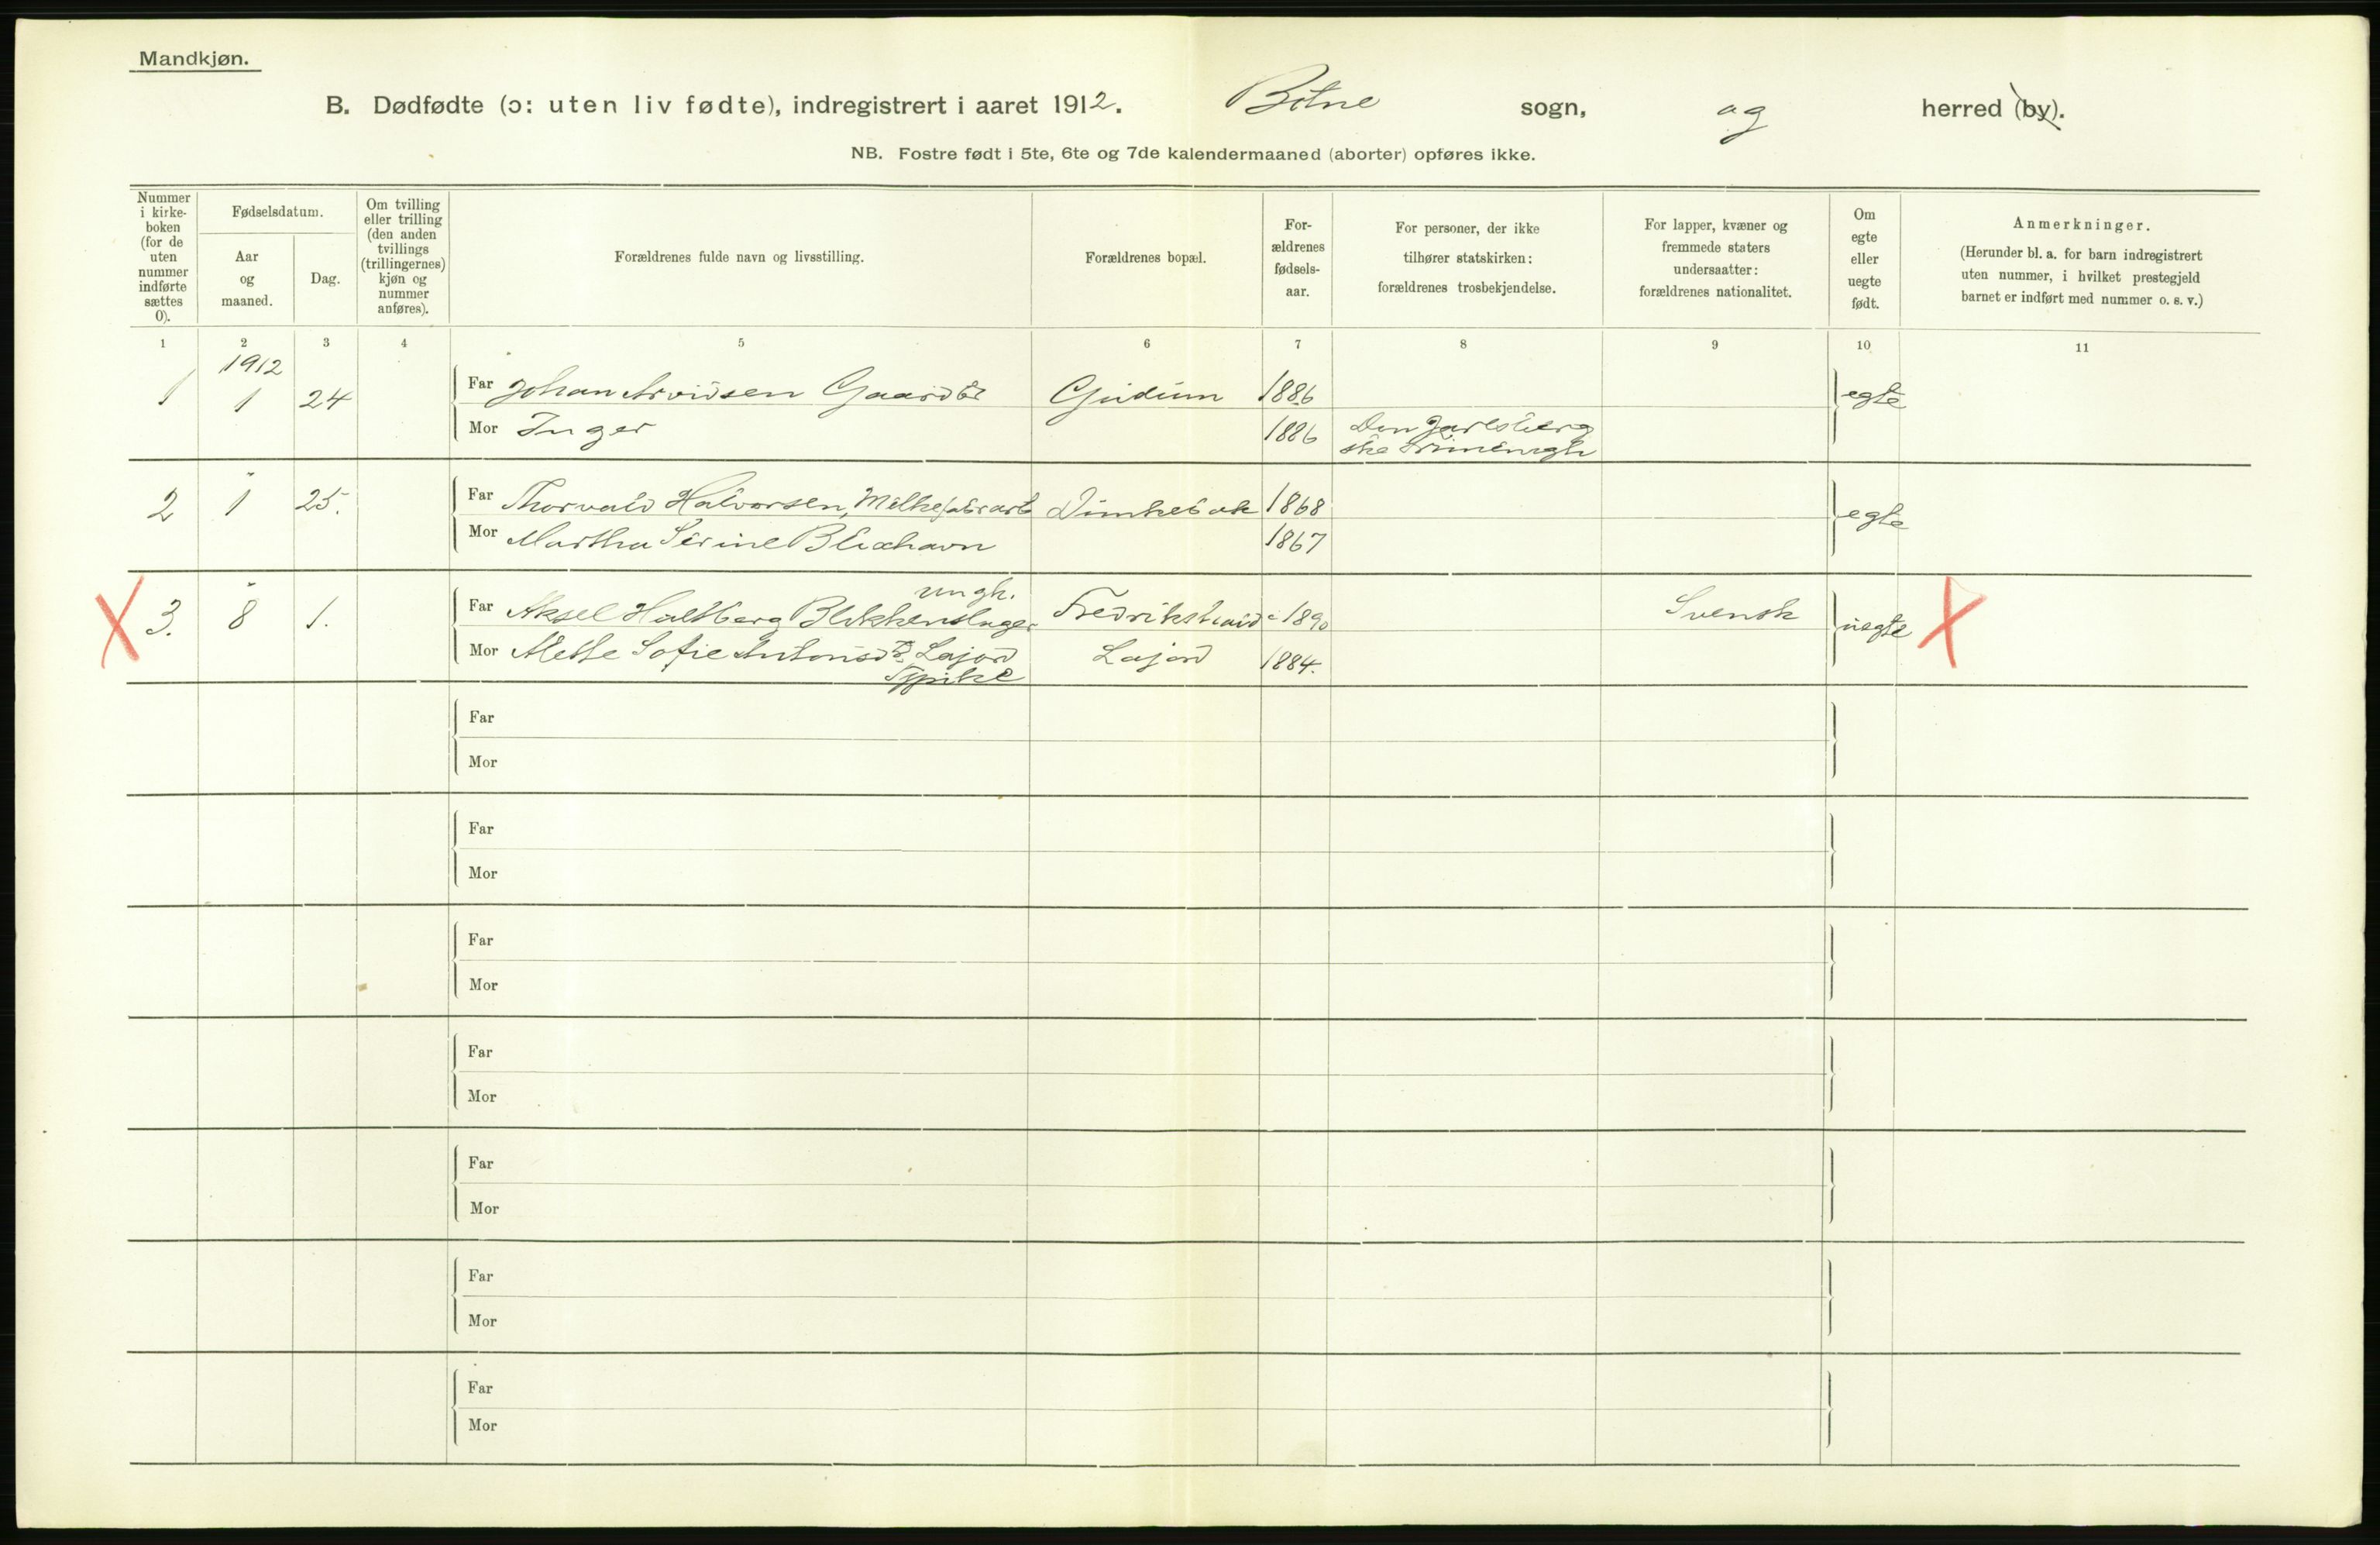 Mandkjøn.
B. Dødfødte (ɔ: uten liv fødte), indregistrert i aaret 1912. Botne sogn, og herred (by).
NB. Fostre født i 5te, 6te og 7de kalendermaaned (aborter) opføres ikke.
Nummer i kirke-boken (for de uten nummer indførte sættes 0).
Fødselsdatum.
Aar og maaned.
Dag.
Om tvilling eller trilling (den anden tvillings (trillingernes) kjøn og nummer anføres).
Forældrenes fulde navn og livsstilling.
Forældrenes bopæl.
For-ældrenes fødsels-aar.
For personer, der ikke tilhører statskirken: forældrenes trosbekjendelse.
For lapper, kvæner og fremmede staters undersaatter: forældrenes nationalitet.
Om egte eller uegte født.
Anmerkninger.
(Herunder bl. a. for barn indregistrert uten nummer, i hvilket prestegjeld barnet er indført med nummer o. s. v.)
1 2 3 4 5 6 7 8 9 10 11
1912
1 1 24 Far Johan Arvidsen Gaardbr Gudum 1886 egte
Mor Inger 1886 Den Jarlsberg
ske Frimenigh
2 " 1 25. Far Thorvald Halvorsen, Melkefabrarb 1868 egte
Mor Martha Serine Blixhavn 1867
ungk.
3. " 8 1. Far Aksel Hallberg Blikkenslager Fredrikstad 1890 Svensk uegte
Mor Mette Sofie Antonsdtr. Lajord Lajord 1884.
Pike
Far
Mor
Far
Mor
Far
Mor
Far
Mor
Far
Mor
Far
Mor
Far
Mor